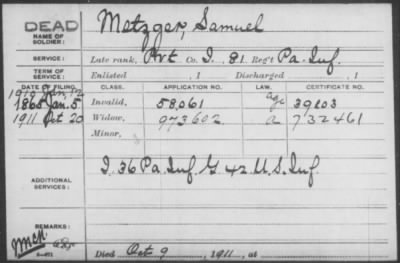 DEAD
NAME OF SOLDIER: Metzger, Samuel
SERVICE: Late rank, Pvt Co. I, 81 Reg't Pa. Inf.
TERM OF SERVICE: Enlisted , 1 Discharged , 1
DATE OF FILING. CLASS. APPLICATION NO. LAW. CERTIFICATE NO.
1912 Jan. 12
1865 Jan. 5 Invalid, 58,061 age 39203
1911 Oct 20 Widow, 973602 a 732461
Minor,
ADDITIONAL SERVICES: I, 36 Pa. Inf. G. 42 U.S. Inf.
REMARKS:
3-471
Died Oct 9 , 1911, at